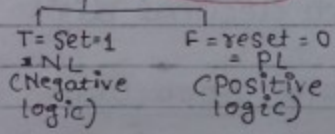 T = Set = 1
= NL
(Negative
logic)
F = reset = 0
= PL
(Positive
logic)